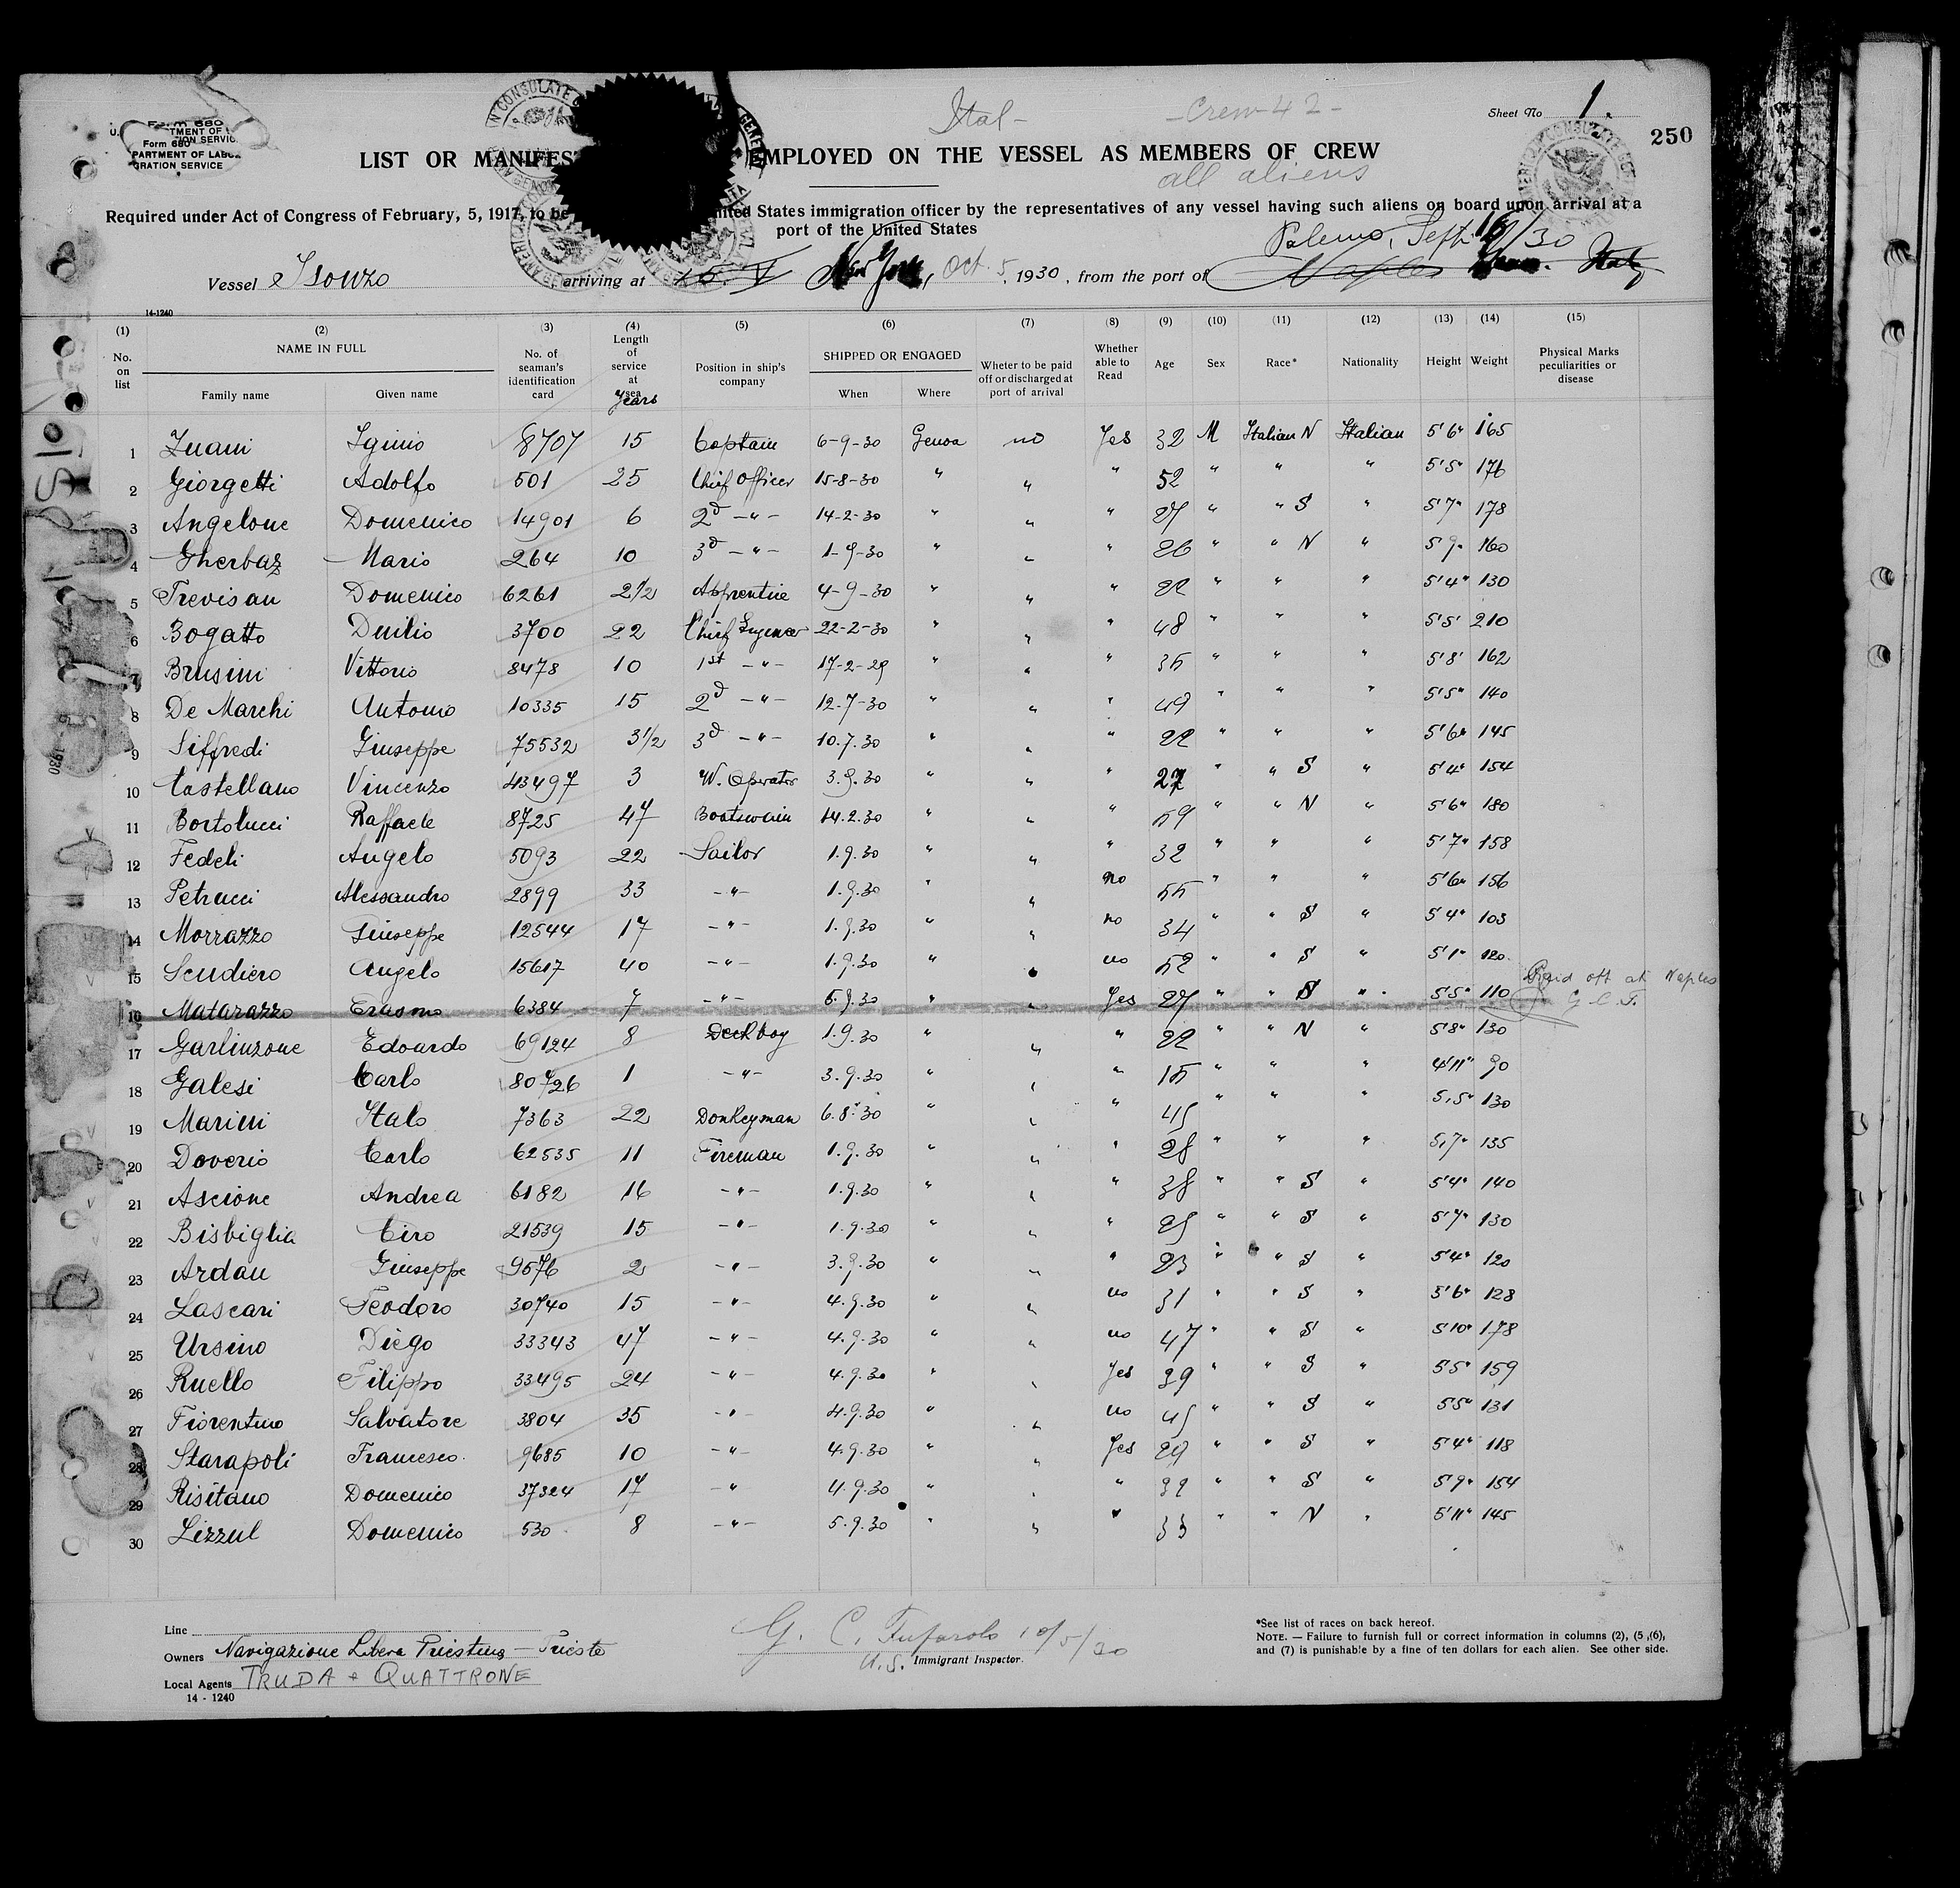 Ital- -Crew 42-
Sheet No 1.
250
Form 680
PARTMENT OF LABO
GRATION SERVICE
LIST OR MANIFEST EMPLOYED ON THE VESSEL AS MEMBERS OF CREW
all aliens
Required under Act of Congress of February, 5, 1917, to be United States immigration officer by the representatives of any vessel having such aliens on board upon arrival at a
port of the United States
Palermo, Sept. 16/30
Vessel Isonzo arriving at New York, Oct. 5, 1930, from the port of Naples Italy
14-1240
(1) (2) (3) (4) (5) (6) (7) (8) (9) (10) (11) (12) (13) (14) (15)
No. on list NAME IN FULL Family name Given name No. of seaman's identification card Length of service at sea Years Position in ship's company SHIPPED OR ENGAGED When Where Wheter to be paid off or discharged at port of arrival Whether able to Read Age Sex Race* Nationality Height Weight Physical Marks peculiarities or disease
1 Zuani Iginio 8707 15 Captain 6-9-30 Genoa no Yes 32 M Italian N Italian 5'6" 165
2 Giorgetti Adolfo 501 25 Chief Officer 15-8-30 " " " 52 " " " 5'5" 176
3 Angelone Domenico 14901 6 2d -"- 14-2-30 " " " 27 " " S " 5'7" 178
4 Gherbaz Mario 264 10 3d -"- 1-9-30 " " " 26 " " N " 5'9" 160
5 Trevisan Domenico 6261 2 1/2 Apprentice 4-9-30 " " " 22 " " " 5'4" 130
6 Bogatto Duilio 3700 22 Chief Engineer 22-2-30 " " " 48 " " " 5'5' 210
7 Brusini Vittorio 8478 10 1st -"- 17-2-29 " " " 35 " " " 5'8' 162
8 De Marchi Antonio 10335 15 2d -"- 12-7-30 " " " 49 " " " 5'5" 140
9 Siffredi Giuseppe 75532 3 1/2 3d -"- 10.7.30 " " " 22 " " " 5'6" 145
10 Castellano Vincenzo 43497 3 W. Operator 3.9.30 " " " 27 " " S " 5'4" 154
11 Bortolucci Raffaele 8725 47 Boatswain 14.2.30 " " " 59 " " N " 5'6" 180
12 Fedeli Angelo 5093 22 Sailor 1.9.30 " " " 32 " " " 5'7" 158
13 Petrucci Alessandro 2899 33 -"- 1.9.30 " " no 55 " " " 5'6" 156
14 Morrazzo Giuseppe 12544 17 -"- 1.9.30 " " no 34 " " S " 5'4" 103
15 Scudiero Angelo 15617 40 -"- 1.9.30 " " no 52 " " S " 5'1" 120
Paid off at Naples
G.C.T.
16 Matarazzo Erasmo 6384 7 -"- 5.9.30 " " Yes 27 " " S " 5'5" 110
17 Garlinzone Edoardo 69124 8 Deckboy 1.9.30 " " " 22 " " N " 5'8" 130
18 Galesi Carlo 80726 1 -"- 3.9.30 " " " 15 " " " 4'11" 90
19 Marini Italo 7363 22 Donkeyman 6.8.30 " " " 45 " " " 5,5" 130
20 Doverio Carlo 62535 11 Fireman 1.9.30 " " " 28 " " " 5,7" 135
21 Ascione Andrea 6182 16 -"- 1.9.30 " " " 38 " " S " 5'4" 140
22 Bisbiglia Ciro 21539 15 -"- 1.9.30 " " " 25 " " S " 5'7" 130
23 Ardau Giuseppe 9576 2 -"- 3.9.30 " " " 23 " " S " 5'4" 120
24 Lascari Teodoro 30740 15 -"- 4.9.30 " " no 31 " " S " 5'6" 128
25 Ursino Diego 33343 47 -"- 4.9.30 " " no 47 " " S " 5'10" 178
26 Ruello Filippo 33495 24 -"- 4.9.30 " " Yes 39 " " S " 5'5" 159
27 Fiorentino Salvatore 3804 35 -"- 4.9.30 " " no 45 " " S " 5'5" 131
28 Starapoli Francesco. 9685 10 -"- 4.9.30 " " Yes 29 " " S " 5'4" 118
29 Risitano Domenico 37324 17 -"- 4.9.30 " " " 32 " " S " 5'9" 154
30 Lizzul Domenico 530 8 -"- 5.9.30 " " " 33 " " N " 5'11" 145
Line
Owners Navigazione Libera Triestina - Trieste
Local Agents TRUDA + QUATTRONE
14 - 1240
G. C. Tufarolo 10/5/30
U.S. Immigrant Inspector.
*See list of races on back hereof.
NOTE. — Failure to furnish full or correct information in columns (2), (5,(6),
and (7) is punishable by a fine of ten dollars for each alien. See other side.